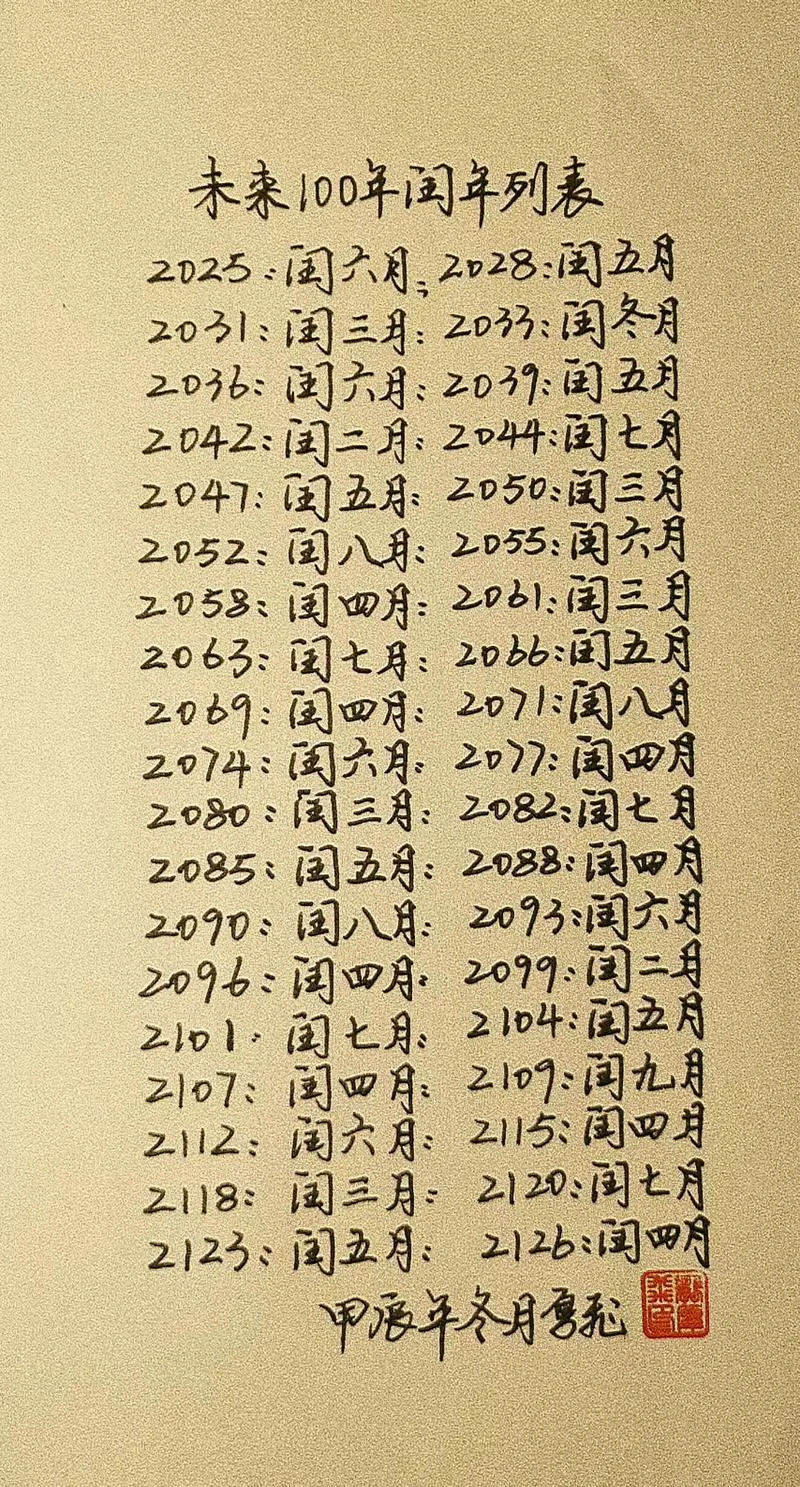 未来100年闰年列表
2025：闰六月；2028：闰五月
2031：闰三月：2033：闰冬月
2036：闰六月：2039：闰五月
2042：闰二月：2044：闰七月
2047：闰五月：2050：闰三月
2052：闰八月：2055：闰六月
2058：闰四月：2061：闰三月
2063：闰七月：2066：闰五月
2069：闰四月：2071：闰八月
2074：闰六月：2077：闰四月
2080：闰三月：2082：闰七月
2085：闰五月：2088：闰四月
2090：闰八月：2093：闰六月
2096：闰四月：2099：闰二月
2101：闰七月：2104：闰五月
2107：闰四月：2109：闰九月
2112：闰六月：2115：闰四月
2118：闰三月：2120：闰七月
2123：闰五月：2126：闰四月
甲辰年冬月勇飞